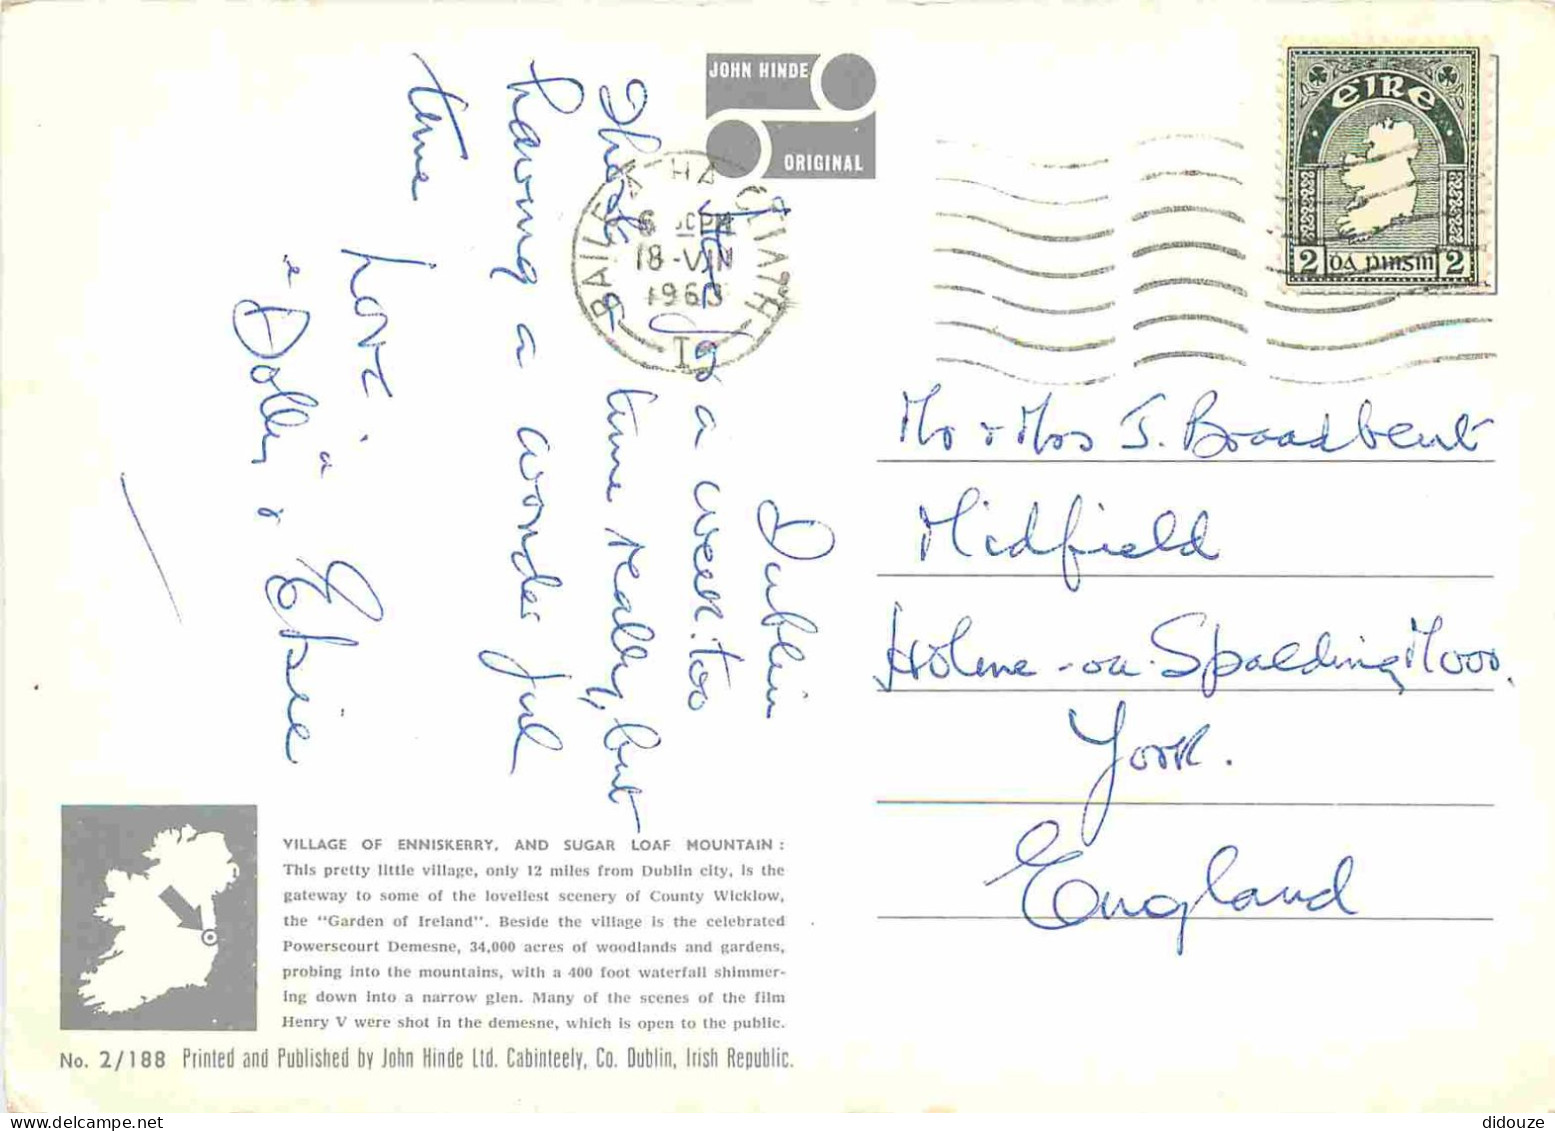 JOHN HINDE
ORIGINAL
EIRE
2 DÁ PINSIN 2
BAILE ÁTHA CLIATH
6 PM
18 VIII
196
I
Dublin
Here for a week. too
Short time really, but
having a wonderful
time
Love
Dolly & Elsie
Mr & Mrs J. Broadbent
Midfield
Holme-on-Spalding Moor.
York.
England
VILLAGE OF ENNISKERRY, AND SUGAR LOAF MOUNTAIN :
This pretty little village, only 12 miles from Dublin city, is the
gateway to some of the loveliest scenery of County Wicklow,
the "Garden of Ireland". Beside the village is the celebrated
Powerscourt Demesne, 34,000 acres of woodlands and gardens,
probing into the mountains, with a 400 foot waterfall shimmer-
ing down into a narrow glen. Many of the scenes of the film
Henry V were shot in the demesne, which is open to the public.
No. 2/188 Printed and Published by John Hinde Ltd. Cabinteely, Co. Dublin, Irish Republic.
didouze